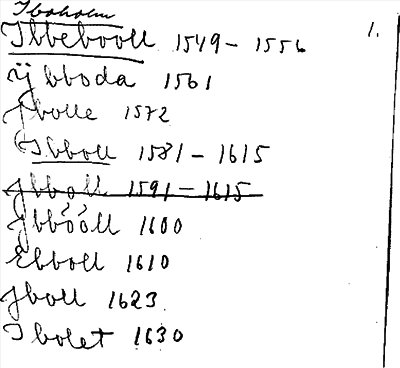 Iboholm
Ibbebooll 1549 - 1556 1.
ÿbboda 1561
Jbolle 1572
(Ibboll 1581 - 1615
Jbboll 1591 - 1615
Jbbóóll 1600
Ebboll 1610
Jboll 1623
Ibolet 1630